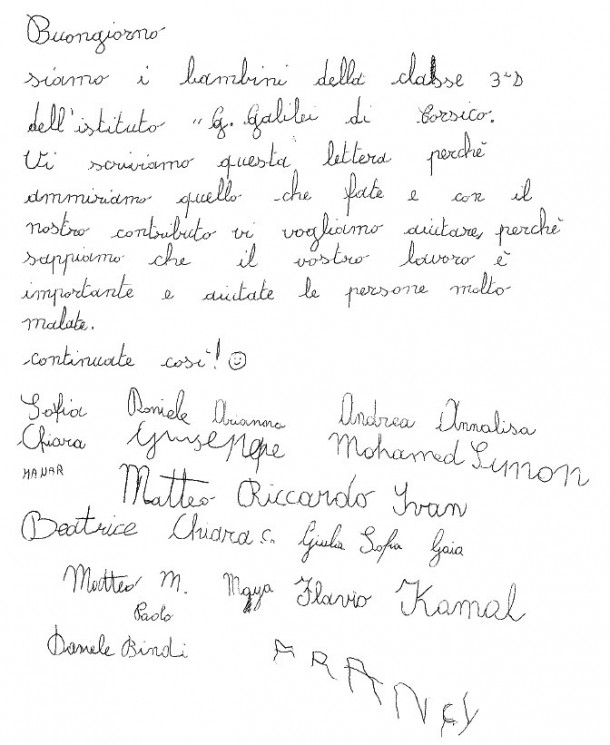 Buongiorno
siamo i bambini della classe 3ªD
dell'istituto "G. Galilei di Corsico.
Vi scriviamo questa lettera perchè
ammiriamo quello che fate e con il
nostro contributo vi vogliamo aiutare, perchè
sappiamo che il vostro lavoro è
importante e aiutate le persone molto
malate.
continuate così! ☺
Sofia Daniele Arianna Andrea Annalisa
Chiara Giuseppe Mohamed Simon
MANAR Matteo Riccardo Ivan
Beatrice Chiara C. Giulia Sofia Gaia
Matteo M. Maya Flavio Kamal
Paolo
Daniele Bindi